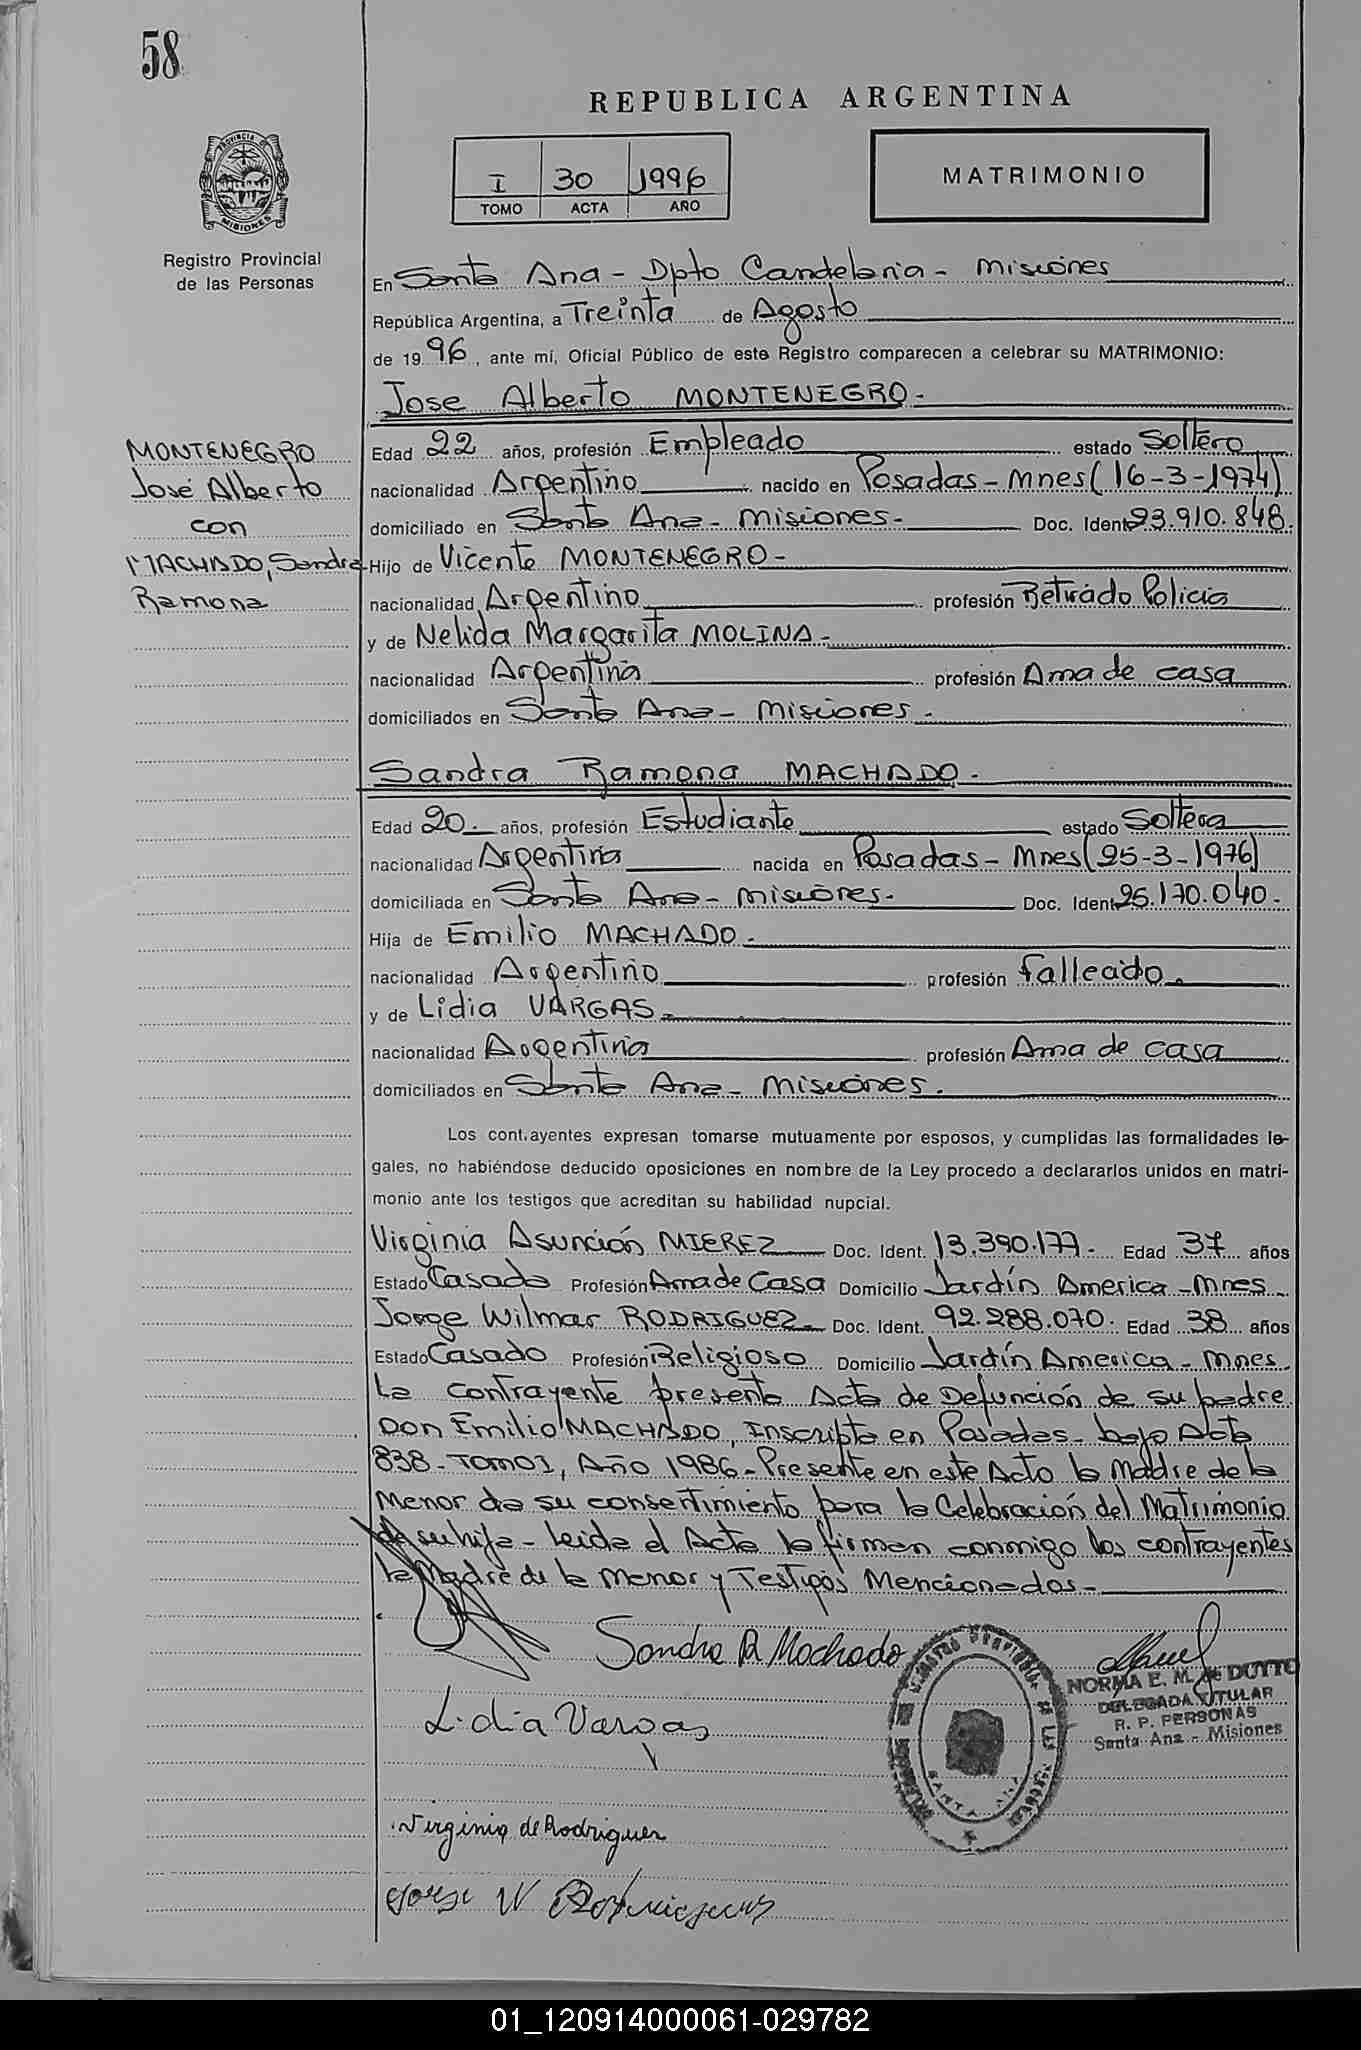 58
REPUBLICA ARGENTINA
I 30 1996
TOMO ACTA AÑO
MATRIMONIO
PROVINCIA DE
MISIONES
Registro Provincial
de las Personas
En Santa Ana - Dpto Candelaria - Misiones
República Argentina, a Treinta de Agosto
de 1996, ante mí, Oficial Público de este Registro comparecen a celebrar su MATRIMONIO:
Jose Alberto MONTENEGRO.-
MONTENEGRO
José Alberto
con
MACHADO, Sandra
Ramona
Edad 22 años, profesión Empleado estado Soltero
nacionalidad Argentino nacido en Posadas - Mnes (16-3-1974)
domiciliado en Santa Ana - Misiones.- Doc. Ident. 23.910.848.
Hijo de Vicente MONTENEGRO -
nacionalidad Argentino profesión Retirado Policia
y de Nelida Margarita MOLINA -
nacionalidad Argentina profesión Ama de casa
domiciliados en Santa Ana - Misiones.-
Sandra Ramona MACHADO.-
Edad 20.- años, profesión Estudiante estado Soltera
nacionalidad Argentina nacida en Posadas - Mnes (25-3-1976)
domiciliada en Santa Ana - Misiones.- Doc. Ident. 25.170.040.-
Hija de Emilio MACHADO.-
nacionalidad Argentino profesión Fallecido.-
y de Lidia VARGAS.-
nacionalidad Argentina profesión Ama de casa
domiciliados en Santa Ana - Misiones.
Los contrayentes expresan tomarse mutuamente por esposos, y cumplidas las formalidades le-
gales, no habiéndose deducido oposiciones en nombre de la Ley procedo a declararlos unidos en matri-
monio ante los testigos que acreditan su habilidad nupcial.
Virginia Asunción MIEREZ Doc. Ident. 13.390.177.- Edad 37 años
Estado Casada Profesión Ama de Casa Domicilio Jardín America - Mnes.
Jorge Wilmar RODRIGUEZ Doc. Ident. 92.288.070. Edad 38 años
Estado Casado Profesión Religioso Domicilio Jardín America - Mnes.
La contrayente presenta Acta de Defunción de su padre
Don Emilio MACHADO, Inscripta en Posadas - bajo Acta
838 - Tomo I, Año 1986 - Presente en este Acto la Madre de la
Menor da su consentimiento para la Celebración del Matrimonio
de su hija - Leida el Acta la firman conmigo los contrayentes
la Madre de la menor y Testigos Mencionados -
Sandra R Machado
NORMA E. M. de DUTTO
DELEGADA TITULAR
R. P. PERSONAS
Santa Ana - Misiones
SANTA ANA
Lidia Vargas
Virginia de Rodriguez
Jorge W Rodriguez
01_120914000061-029782